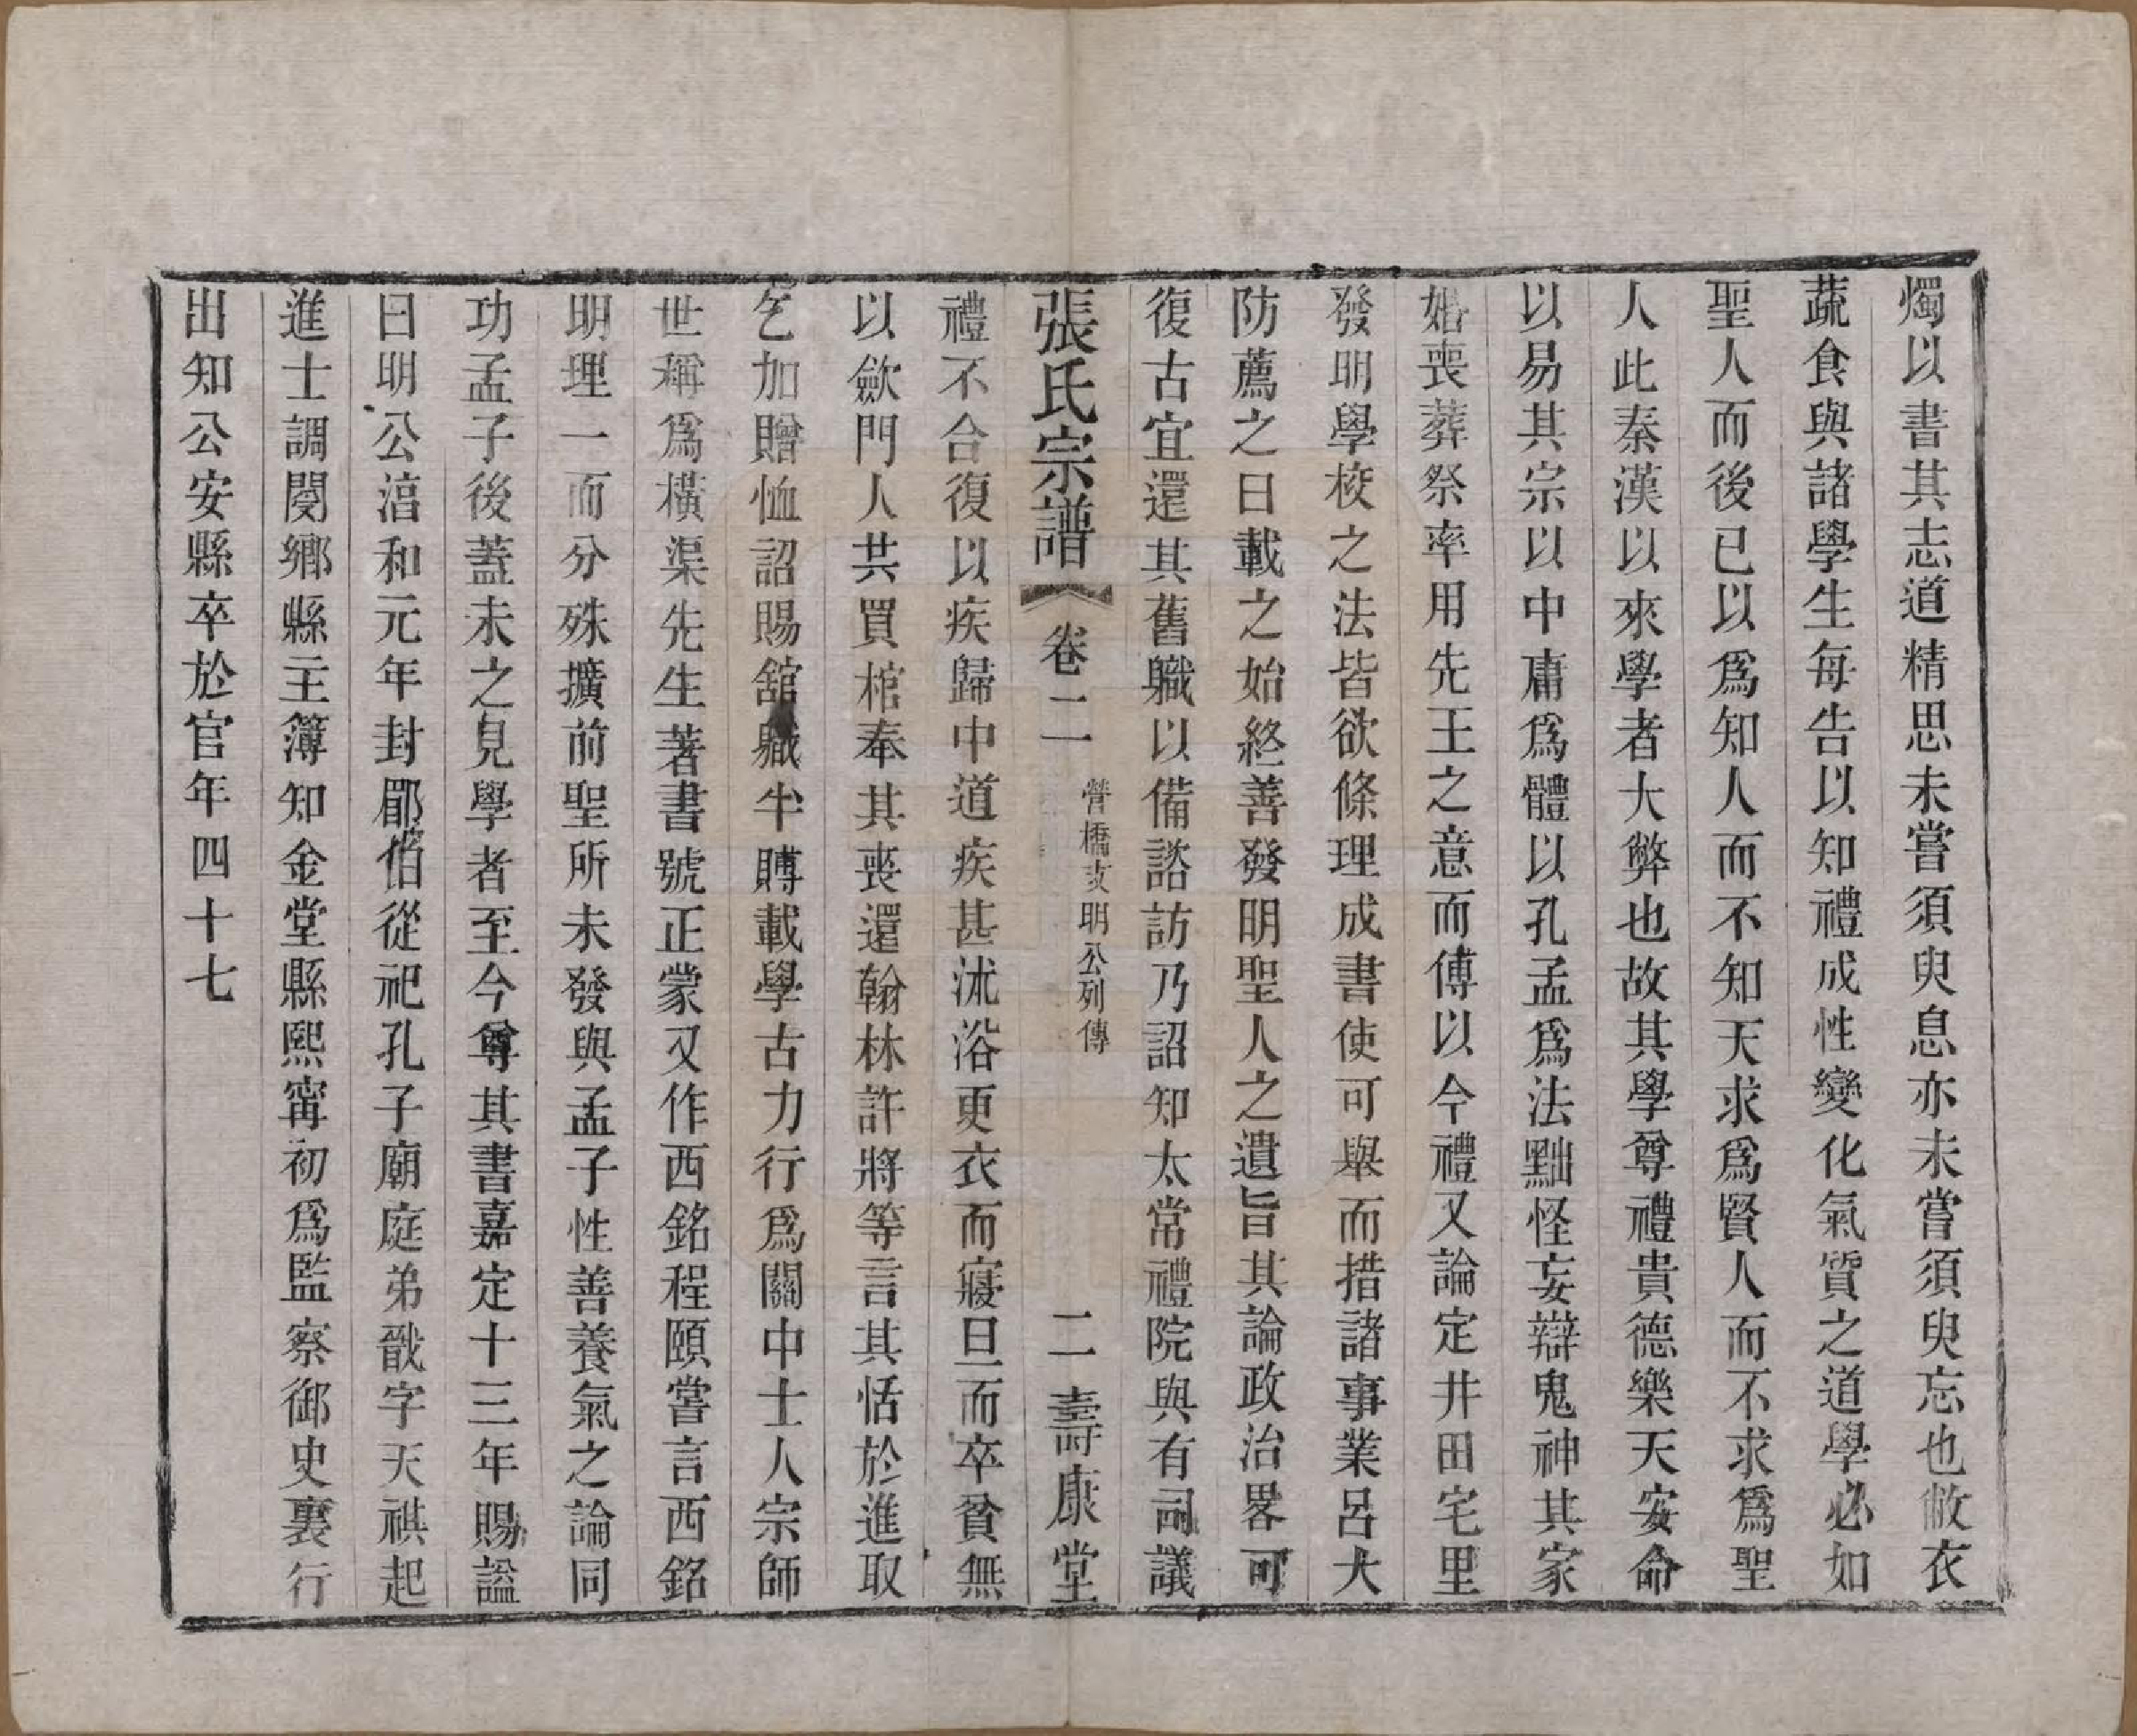 燭以書其志道精思未嘗須臾息亦未嘗須臾忘也敝衣
蔬食與諸學生每告以知禮成性變化氣質之道學必如
聖人而後已以爲知人而不知天求爲賢人而不求爲聖
人此秦漢以來學者大弊也故其學尊禮貴德樂天安命
以易其宗以中庸爲體以孔孟爲法黜怪妄辯鬼神其家
婚喪葬祭率用先王之意而傅以今禮又論定井田宅里
發明學校之法皆欲條理成書使可舉而措諸事業呂大
防薦之曰載之始終善發明聖人之遺旨其論政治畧可
復古宜還其舊職以備諮訪乃詔知太常禮院與有司議
張氏宗譜 卷二 營橋支明公列傳 二 壽康堂
禮不合復以疾歸中道疾甚沭浴更衣而寢旦而卒貧無
以歛門人共買棺奉其喪還翰林許將等言其恬於進取
乞加贈恤詔賜舘職半賻載學古力行爲關中士人宗師
世稱爲橫渠先生著書號正蒙又作西銘程頤嘗言西銘
明理一而分殊擴前聖所未發與孟子性善養氣之論同
功孟子後蓋未之見學者至今尊其書嘉定十三年賜諡
曰明公湻和元年封郿伯從祀孔子廟庭弟戩字天祺起
進士調閿鄉縣主簿知金堂縣熙甯初爲監察御史裏行
出知公安縣卒於官年四十七